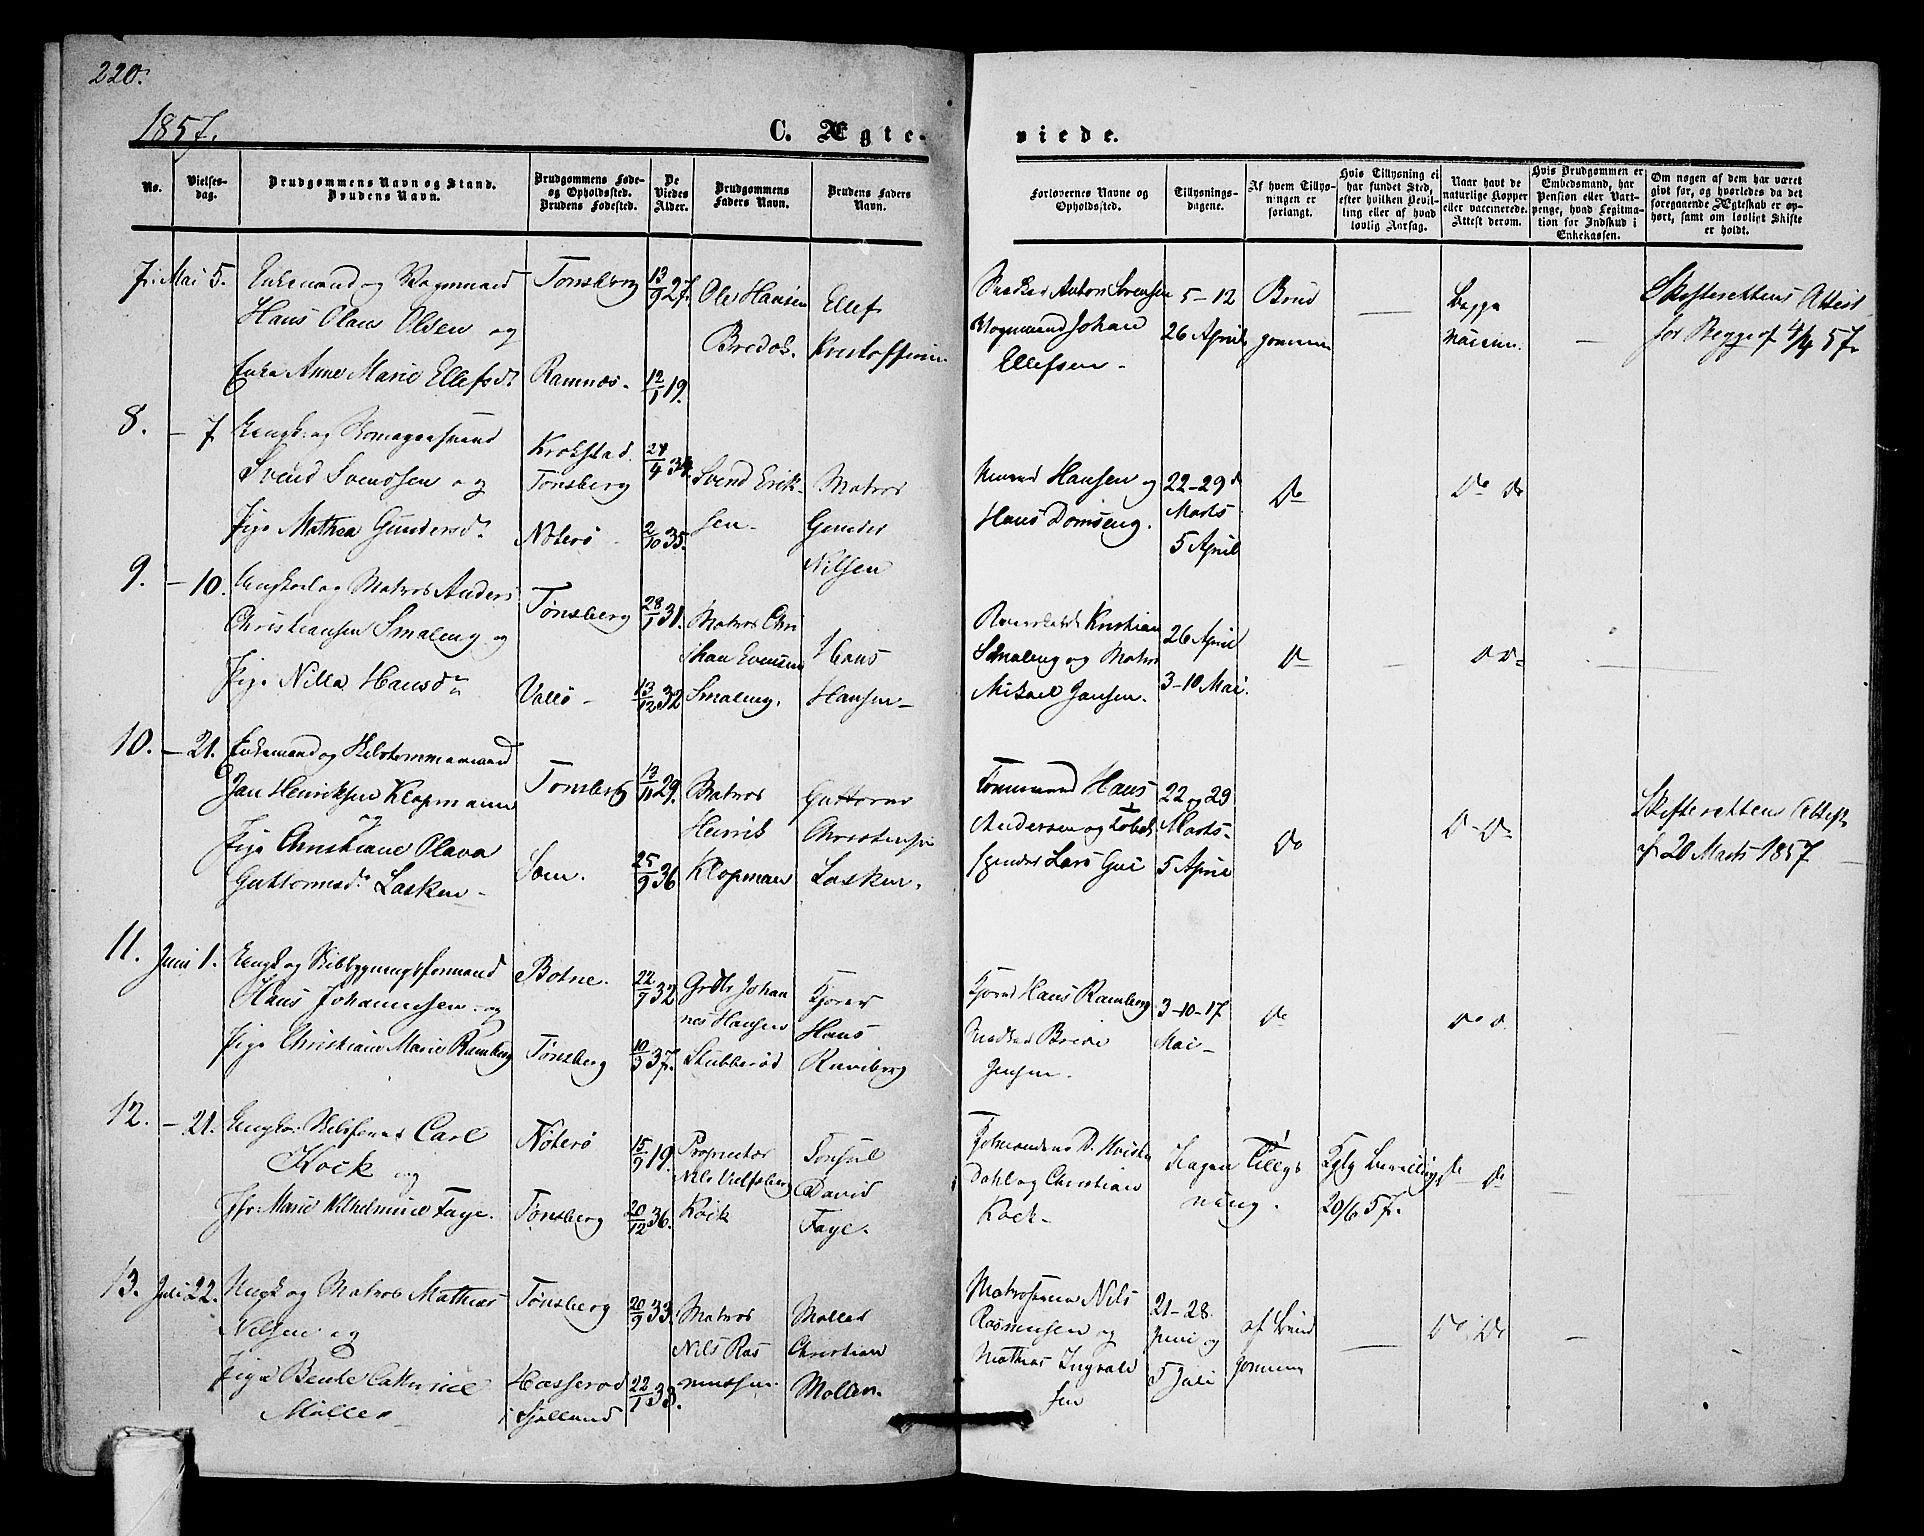 220.
1857.
C. Ægte-
viede.
No.
Vielses-
dag.
Brudgommens Navn og Stand.
Brudens Navn.
Brudgommens Føde-
og Opholdssted.
Brudens Fødested.
De
Viedes
Alder.
Brudgommens
Faders Navn.
Brudens Faders
Navn.
Forlovernes Navne og
Opholdssted.
Tillysnings-
dagene.
Af hvem Tillys-
ningen er
forlangt.
Hvis Tillysning ei
har fundet Sted,
efter hvilken Bevil-
ling eller af hvad
lovlig Aarsag.
Naar havt de
naturlige Kopper
eller vaccinerede.
Attest derom.
Hvis Brudgommen er
Embedsmand, har
Pension eller Vart-
penge, hvad Legitima-
tion for Indskud i
Enkekassen.
Om nogen af dem har været
givt før, og hvorledes da det
foregaaende Ægteskab er op-
hørt, samt om lovligt Skifte
er holdt.
7. Mai 5. Enkemand og Vognmand
Hans Olaus Olsen og
Enke Anne Marie Ellefsd.
Tønsberg
Ramnæs.
13/9 27.
12/1 19.
Ole Hansen
Bredok.
Ellef
Kristoffersen
Anton Sørensen
Vognmand Johan
Ellefsen
5-12
26 April
Brud
gommen
Begge
Skifterettens Attest
for Begge af 4/4 57.
8. - 7.
Svend Svendsen og
Pige Mathea Gundersd.
Krokstad.
Tønsberg
Nøterø
24/4 34.
2/10 35.
Svend Erik-
sen
Matros
Gunder
Nilsen
Hansen og
Hans Domseng.
22-29d
Marts
5 April
Do
Do Do
9. - 10. Ungkarl og Matros Anders
Christiansen Smaleng og
Pige Nilla Hansd.
Tønsberg
Vallø
28/1 31.
13/12 32
Matros Chri
sthan Evensen
Smaleng.
Hans
Hansen
Kristian
Smaleng og Matros
Mikael Jansen.
26 April
3-10 Mai.
Do
Do Do
10. - 21. Enkemand og Skibstømmermand
Jan Henriksen Klopmann
og
Pige Christiane Olava
Guttormsd. Lasken
Tønsberg
Sem.
13/11 29.
25/9 36
Matros
Henrik
Klopman
Guttorm
Christensen
Lasken.
Tømmermand Hans
Andersen og
Lars
22 og 29
Marts
5 April
Do
Do Do
Skifterettens Attest
af 20 Marts 1857
11. Juni 1. Ungk og Skibbygningsformand
Hans Johannesen og
Pige Christiane Marie Ramberg
Botne.
Tønsberg
22/9 32
10/3 37.
Johan
nes Hansen
Stubberød
Hans
Ramberg
Hans Ramberg
Brede
Jensen
3-10-17
Mai
Do
Do Do
12. - 21. Ungk. Skibsfører Carl
Kock og
Jfr. Marie Vilhelmine Faye.
Nøterø
Tønsberg
15/9 19.
20/12 36.
Proprietær
Nils Vulfsberg
Kock
Consul
David
Faye.
Dahl og Christian
Kock
Ingen Tillys
ning.
Kglg Bevilling
20/6 57.
Do Do
13. Juli 22. Ungk og Matros Mathias
Nilsen og
Pige Bente Cathrine
Møller
Tønsberg
Hasserod
i Sjelland
20/9 33.
22/1 33.
Matros
Nils Ras
mussen
Møller
Christian
Møller.
Matroserne Nils
Rasmusen og
Mathias Ingvald
sen
21-28
Juni og
5 Juli
af Brud
gommen
Do Do